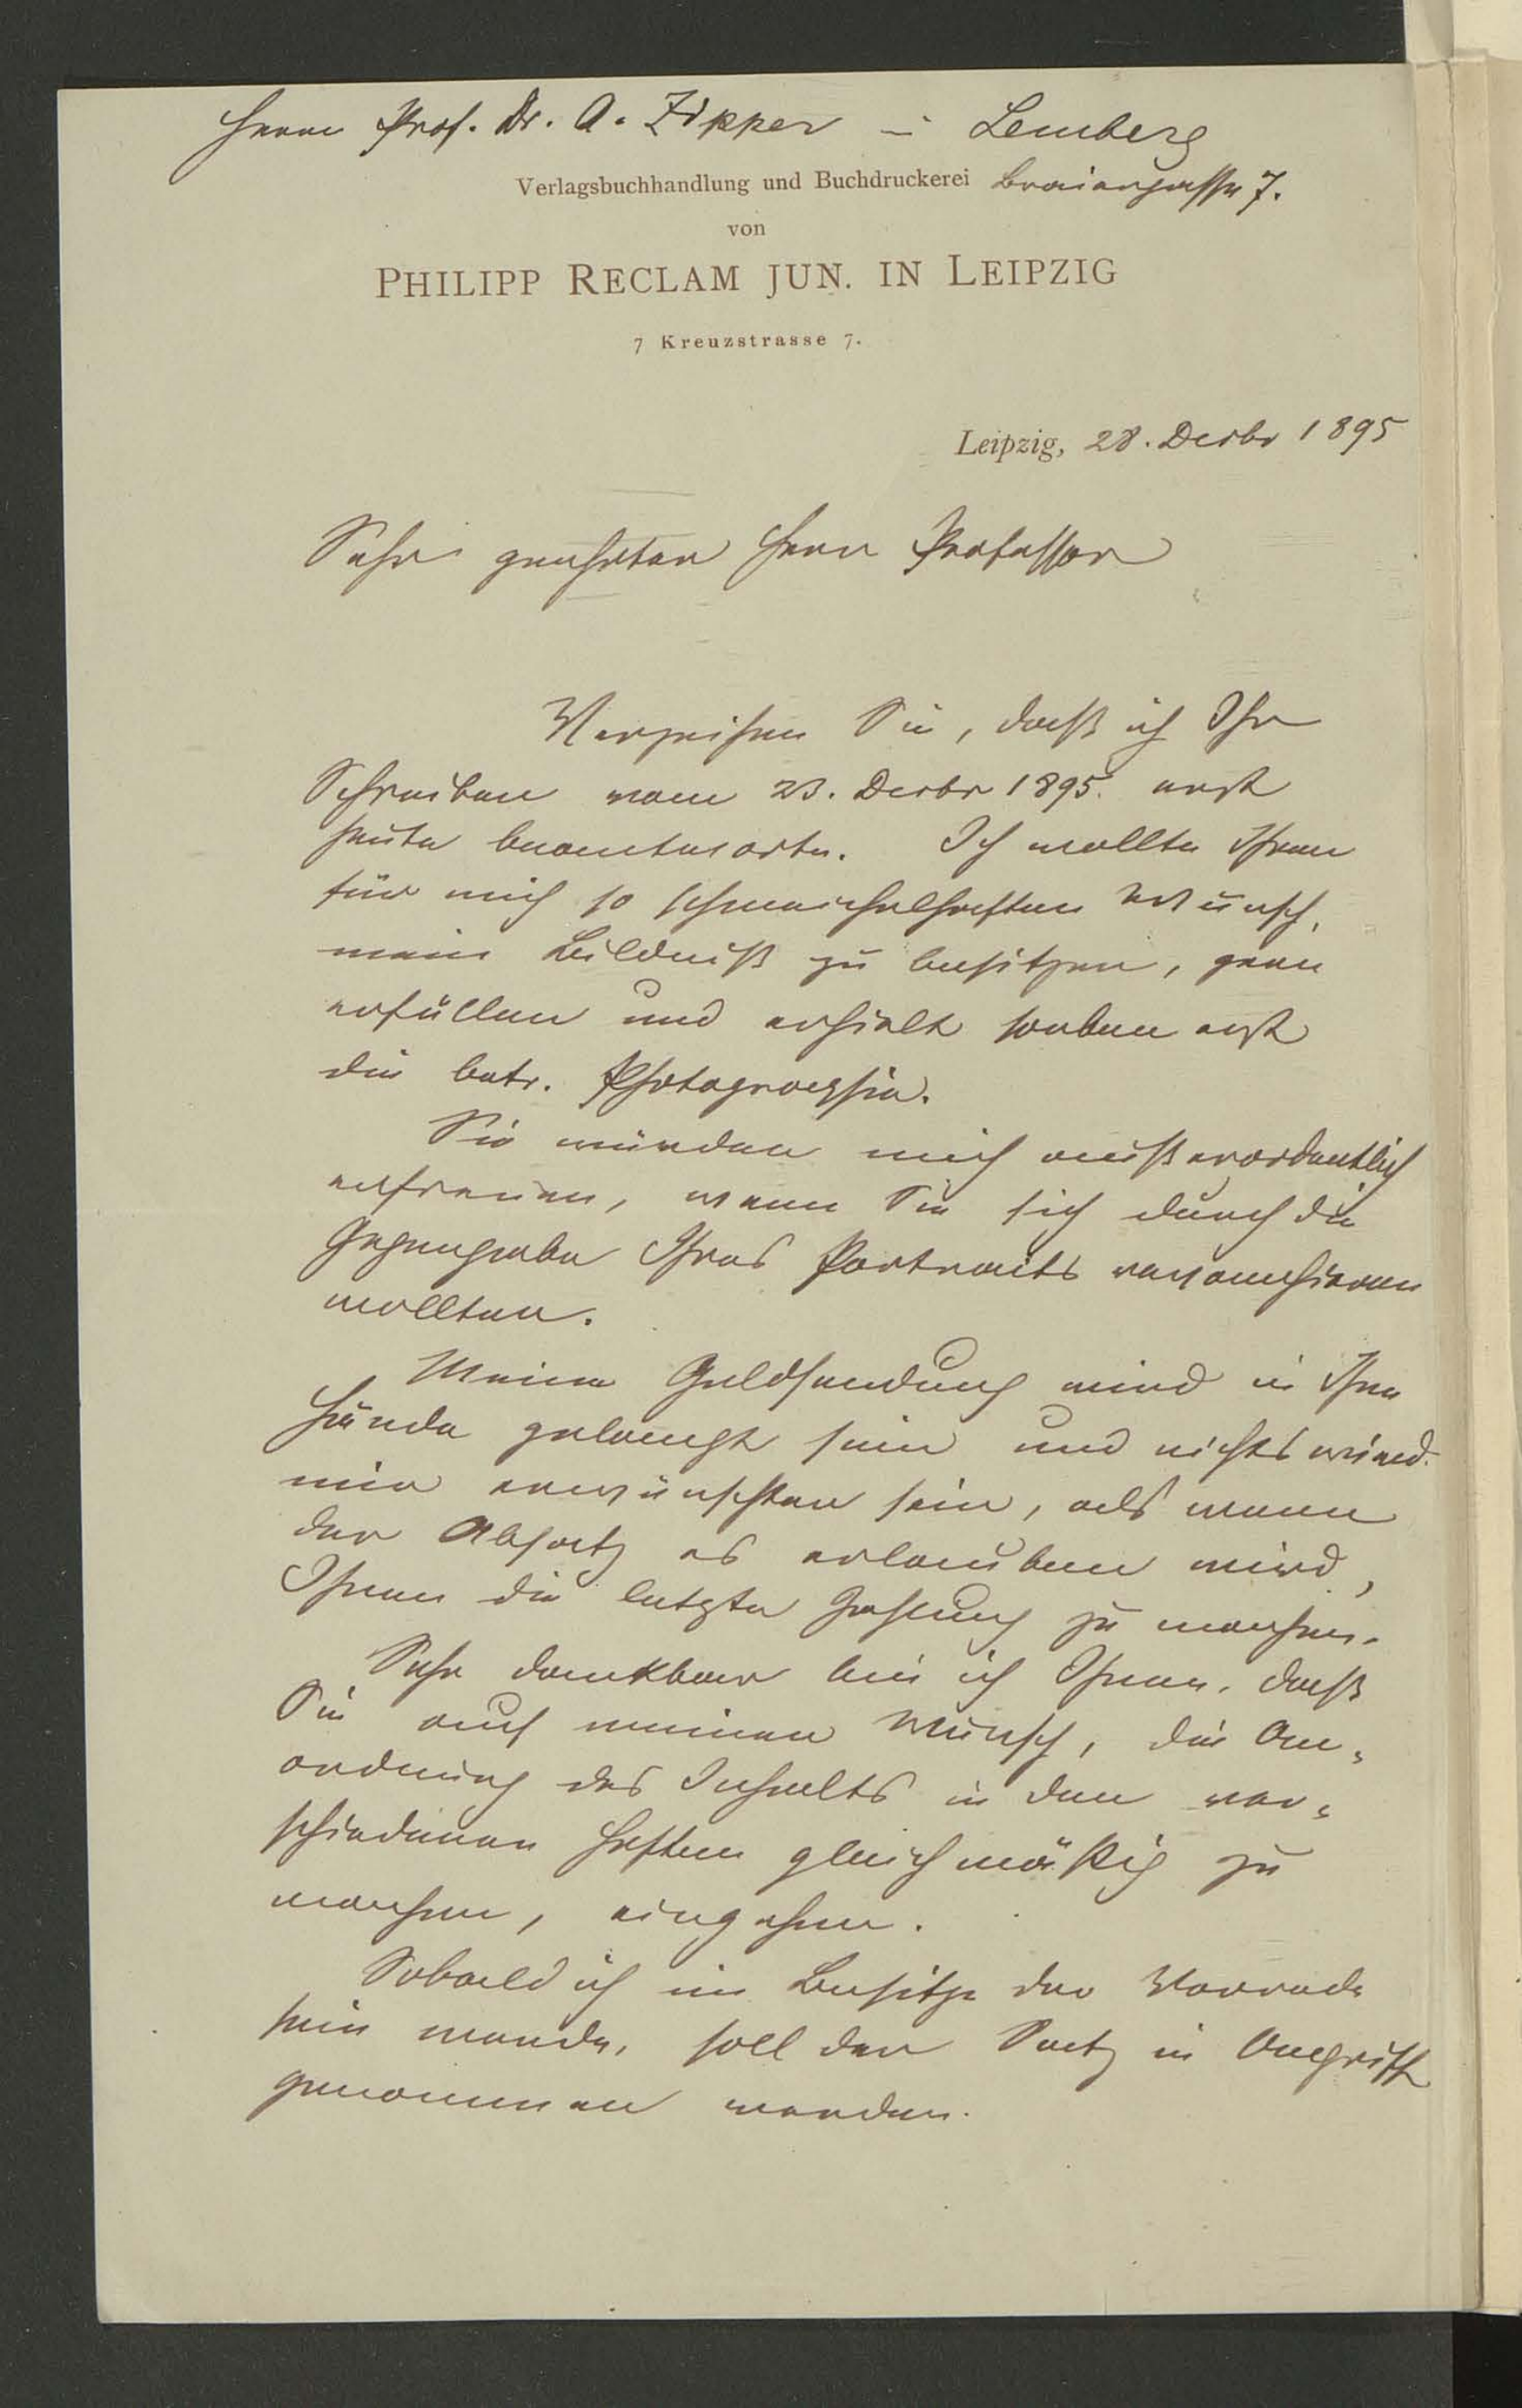 Herrn Prof. Dr. A. Zipper in Lemberg
Verlagsbuchhandlung und Buchdruckerei Braiergasse 7.
von
PHILIPP RECLAM JUN. IN LEIPZIG
7 Kreuzstrasse 7.
Leipzig, 28. Decbr 1895
Sehr geehrter Herr Professor
Verzeihen Sie, daß ich Ihr
Schreiben vom 23. Decbr 1895. erst
heute beantworte. Ich wollte Ihren
für mich so schmeichelhaften Wunsch,
mein Bildniß zu besitzen, gern
erfüllen und erhielt soeben erst
die betr. Photographie.
Sie würden mich außerordentlich
erfreuen, wenn Sie sich durch die
Gegengabe Ihres Portraits revanchieren
wollten.
Meine Geldsendung wird in Ihre
Hände gelangt sein und nichts wird
mir erwünschter sein, als wenn
der Absatz es erlauben wird,
Ihnen die letzte Zahlung zu machen.
Sehr dankbar bin ich Ihnen, daß
Sie auf meinen Wunsch, die An-
ordnung des Inhalts in den ver-
schiedenen Heften gleichmäßig zu
machen, eingehen.
Sobald ich im Besitze der Vorrede
sein werde, soll der Satz in Angriff
genommen werden.